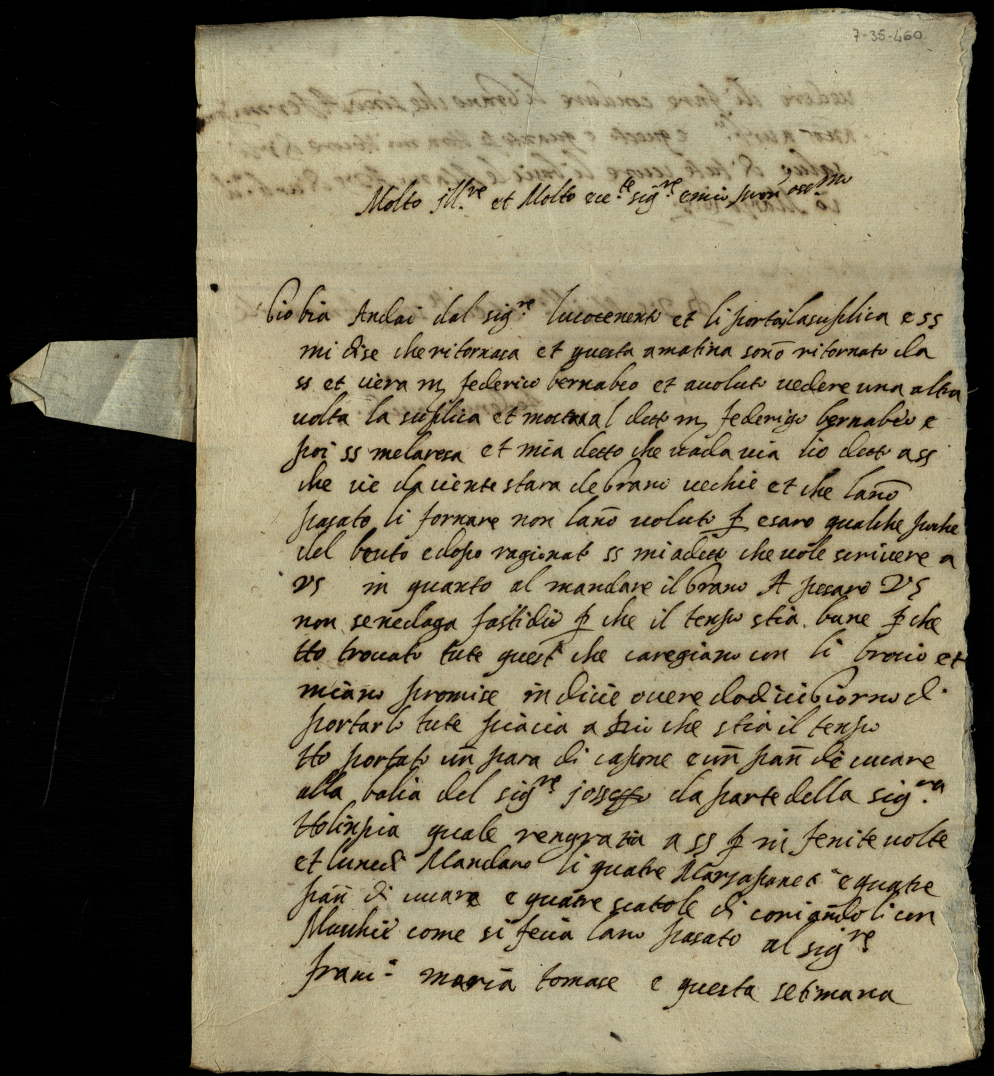 7-35-460
Molto Ill.re et Molto ecc.te sig.re e mio
Giobia Andai dal sig.re et li portai la suplica e ss
mi dise che ritornasa et questa amatina sono ritornato da
ss et viera m federico bernabeo et a voluto vedere una altra
volta la suplica et mostra al detto m federigo bernabeo e
poi ss me la resa et mia detto che vada via lio detto a ss
che vie da viente stara de brano vechie et che lano
pasato li fornare non lano voluto p esaro qualche poche
del e dopo ragionato ss mi a detto che vole scrivere a
VS in quanto al mandare il brano A pesaro VS
non se ne daga fastidio p che il tenpo stia bune p che
Ho trovato tute quest che caregiano con li et
miano promise in dicie overe dodici Giorno di
portarlo tute piacia a Dio che stia il tenpo
Ho portato un para di capone e un pan di cucare
alla balia del sig.re josseffo da parte della sig.ra
Holinpia quale rengratia a ss p in fenite volte
et lunedi Mandaro li quatre Marzapane et e quatre
pan di cucare e quatre scatole di coriandoli con
Muschie come si fecia lano pasato al sig.re
franc.o maria tomase e questa setimana